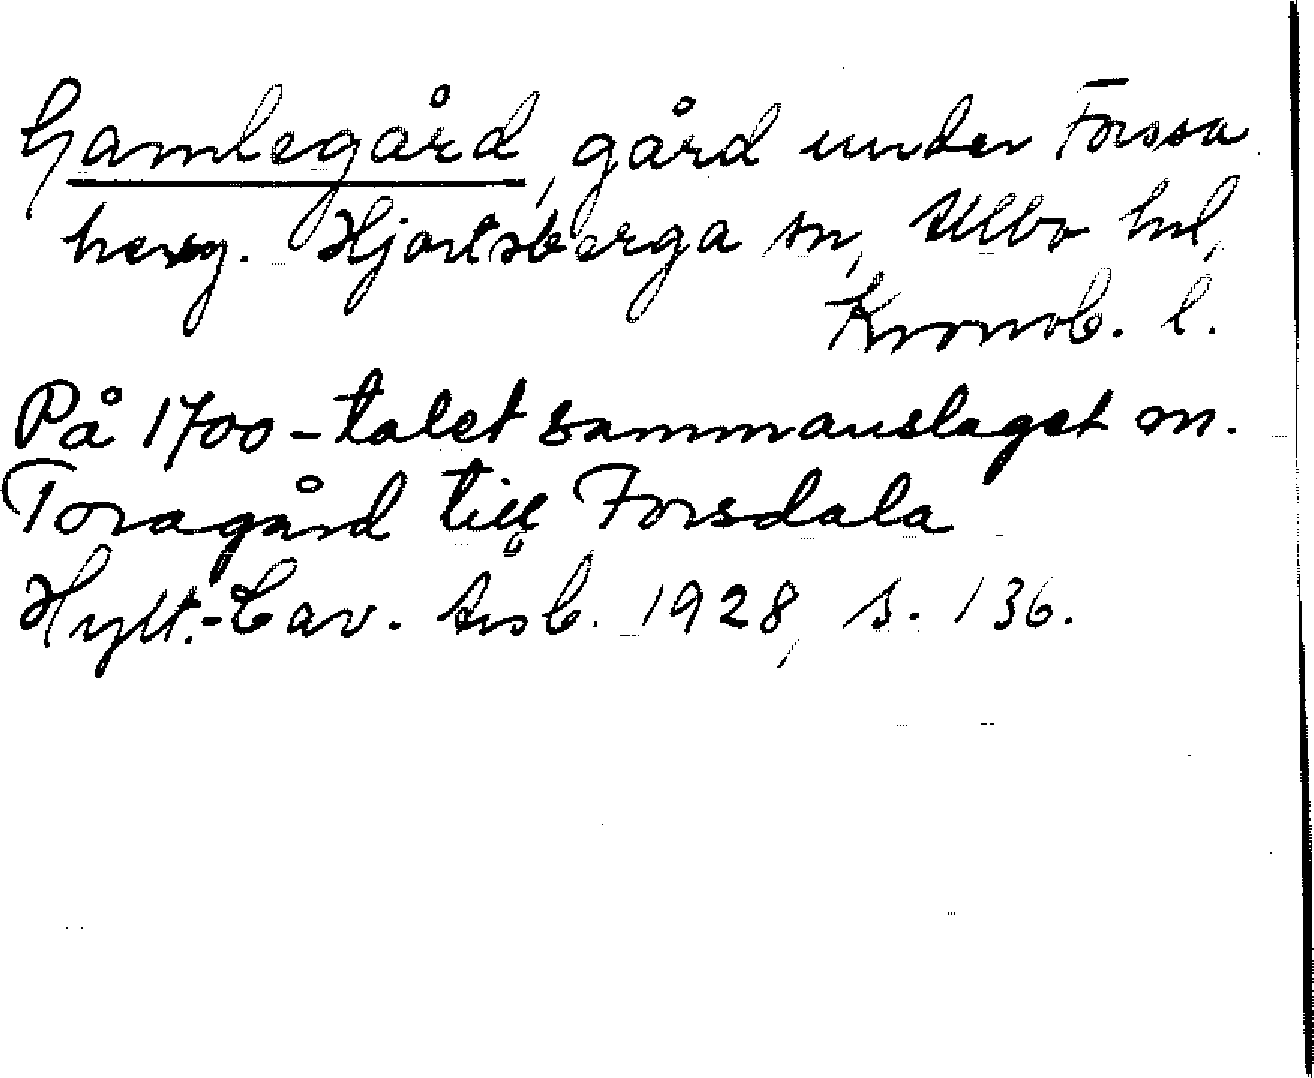 Gamlegård, gård under Forssa
herrg. Hjortsberga sn, Allbo hd,
Kronob. l.
På 1700-talet sammanslaget m.
Toragård till Forsdala
Hylt.-Cav. årsb. 1928, s. 136.